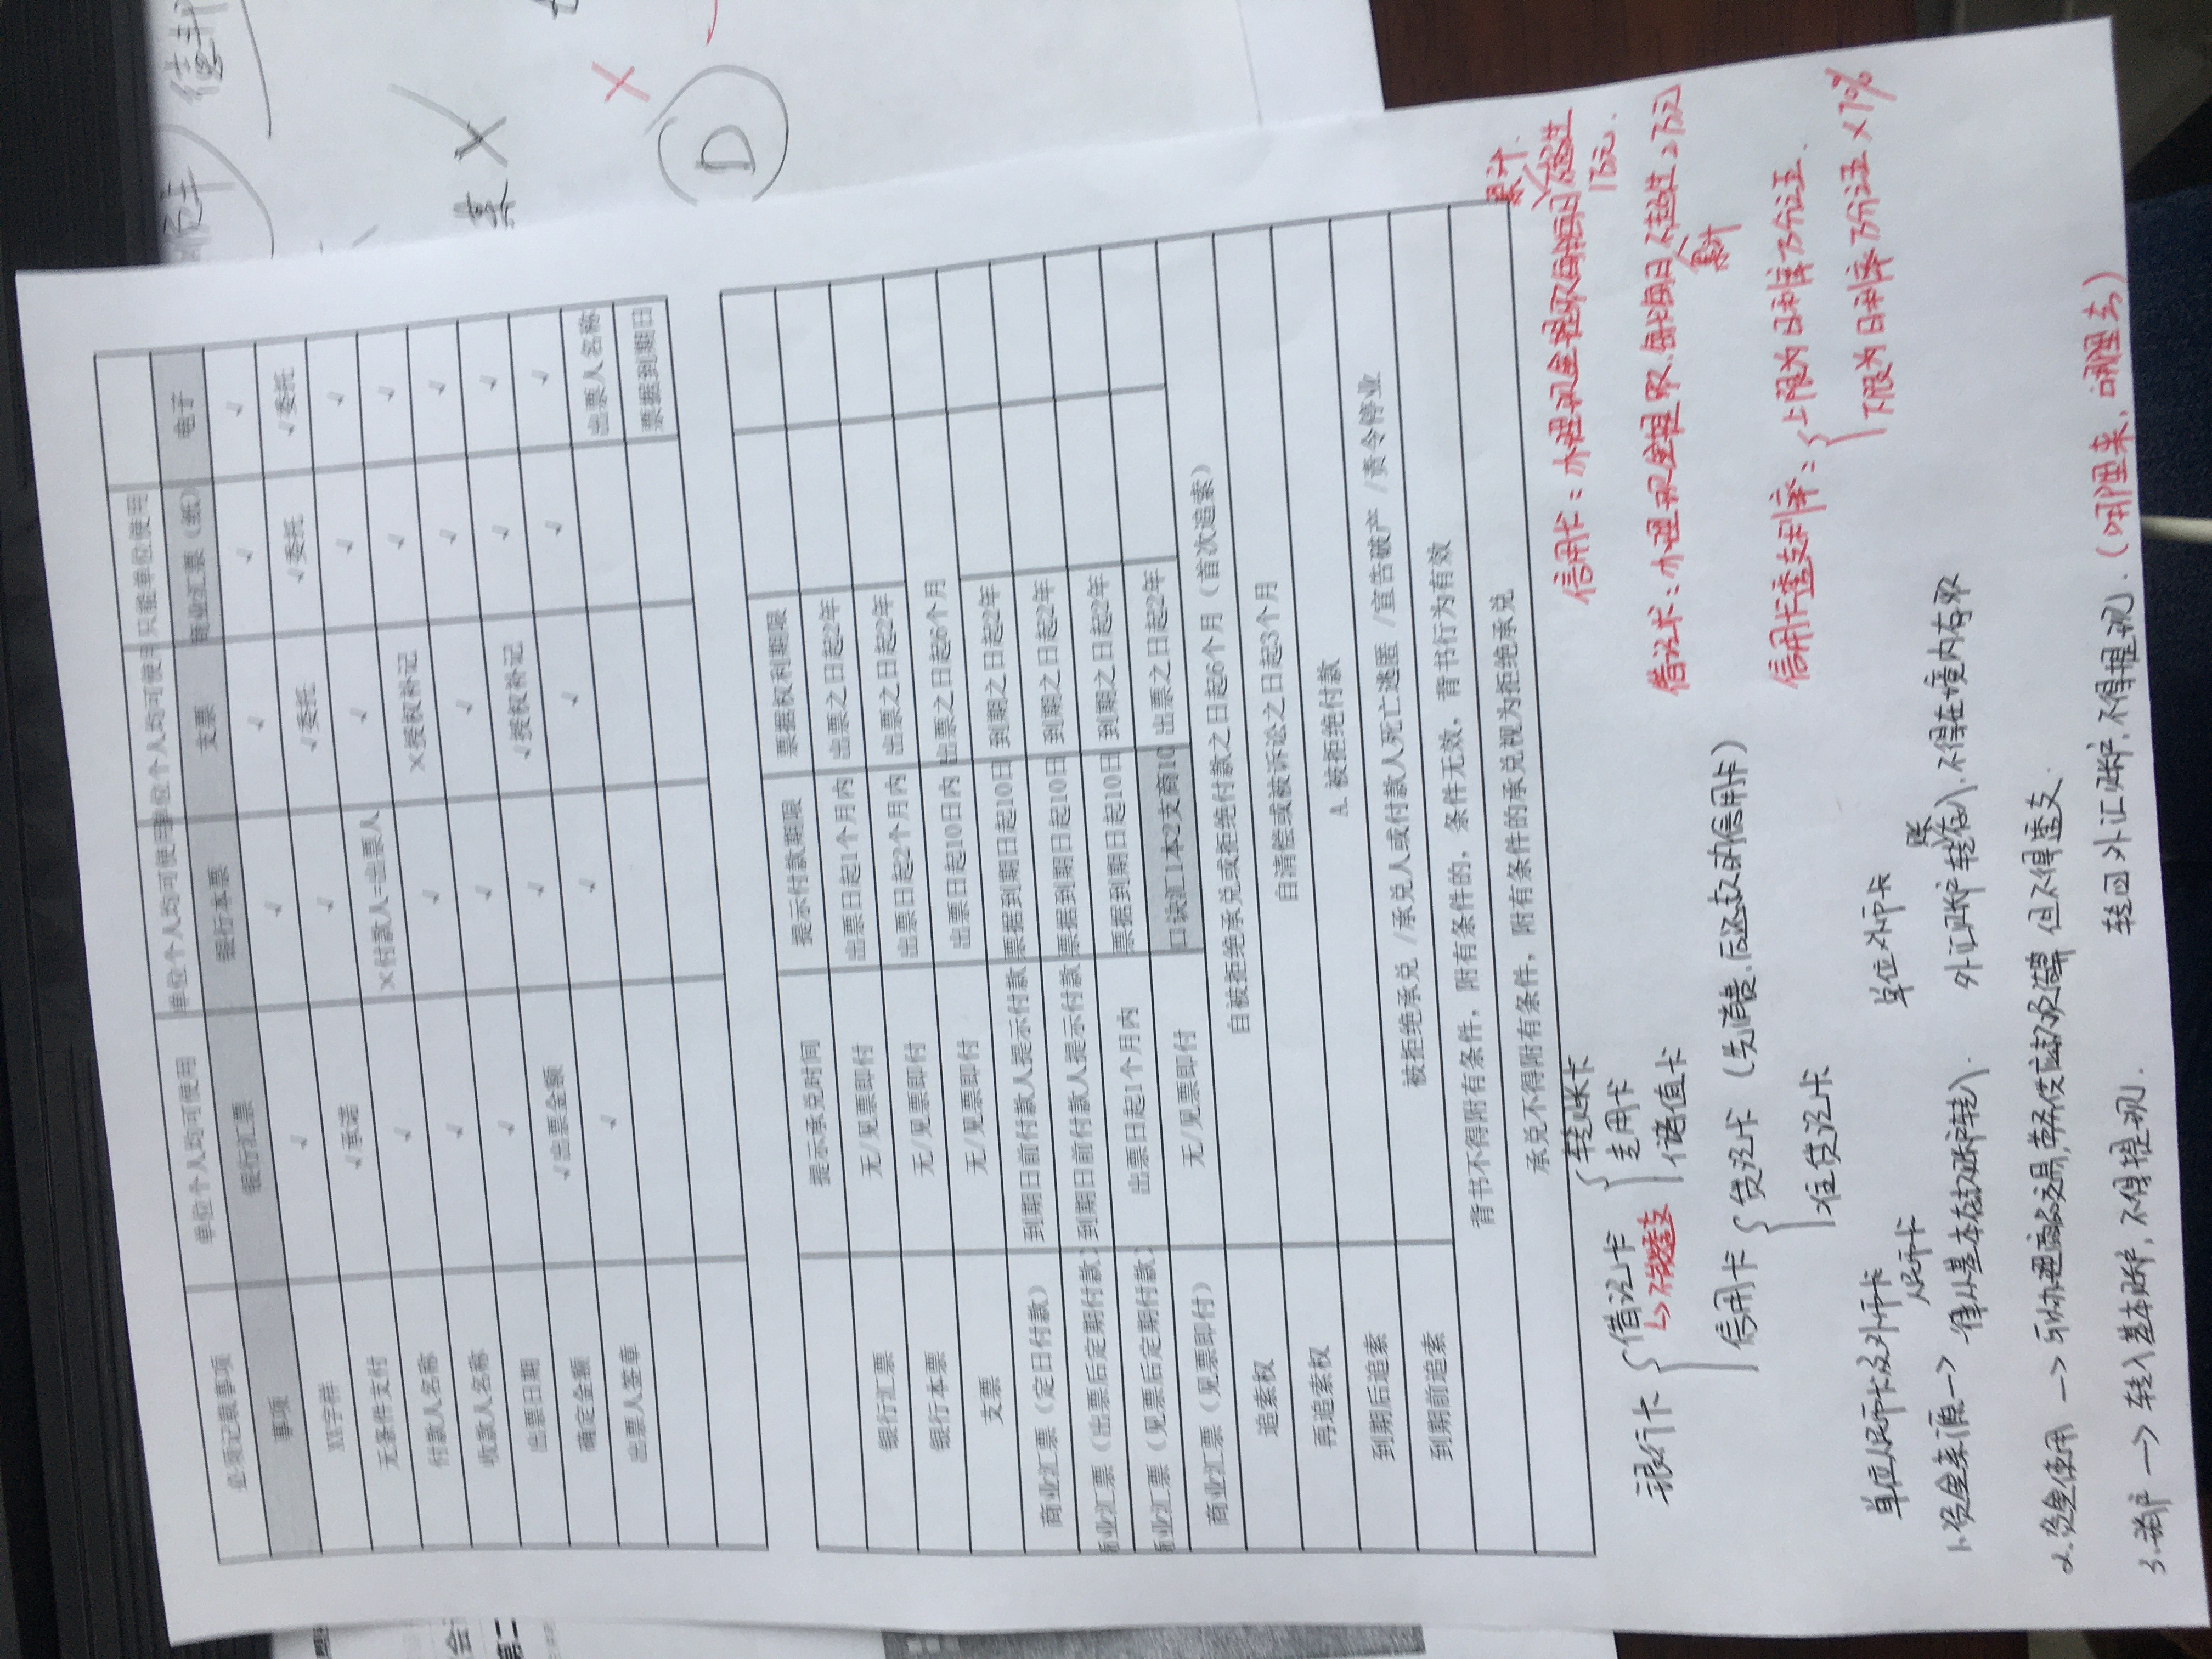 单位个人均可使用 单位个人均可使用 单位个人均可使用 只能单位使用
必须记载事项 银行汇票 银行本票 支票 商业汇票（纸） 电子
事项
XX字样 √ √ √ √ √
无条件支付 √承诺 √ √委托 √委托 √委托
付款人名称 √ ×付款人=出票人 √ √ √
收款人名称 √ √ ×授权补记 √ √
出票日期 √ √ √ √ √
确定金额 √出票金额 √ √授权补记 √ √
出票人签章 √ √ √ √ √
出票人名称
票据到期日
提示承兑时间 提示付款期限 票据权利期限
银行汇票 无/见票即付 出票日起1个月内 出票之日起2年
银行本票 无/见票即付 出票日起2个月内 出票之日起2年
支票 无/见票即付 出票日起10日内 出票之日起6个月
商业汇票（定日付款） 到期日前付款人提示付款 票据到期日起10日 到期之日起2年
商业汇票（出票后定期付款） 到期日前付款人提示付款 票据到期日起10日 到期之日起2年
商业汇票（见票后定期付款） 出票日起1个月内 票据到期日起10日 到期之日起2年
商业汇票（见票即付） 无/见票即付 口诀汇1本2支商10 出票之日起2年
追索权 自被拒绝承兑或拒绝付款之日起6个月（首次追索）
再追索权 自清偿或被诉讼之日起3个月
到期后追索 A 被拒绝付款
到期前追索 被拒绝承兑/承兑人或付款人死亡逃匿/宣告破产/责令停业
背书不得附有条件，附有条件的，条件无效，背书行为有效
承兑不得附有条件，附有条件的承兑视为拒绝承兑
银行卡
借记卡
转账卡
专用卡
储值卡
↳不能透支
信用卡
贷记卡（先消费，后还款的信用卡）
准贷记卡
信用卡：办理现金提取每卡每日累计不超过1万元.
借记卡：办理现金提取，每卡每日累计不超过2万元
信用卡透支利率：
上限为日利率万分之五.
下限为日利率万分之五×70%
单位人民币卡及外币卡
人民币卡
单位外币卡
1.资金来源→ 一律从基本存款账户转入.
外汇账户转账存入，不得在境内存取
2.资金使用 → 可办理商品交易，劳务供应款项结算，但不得透支.
3.销户 → 转入基本账户，不得提现.
转回外汇账户，不得提现.（哪里来，哪里去）
票 X
D
X